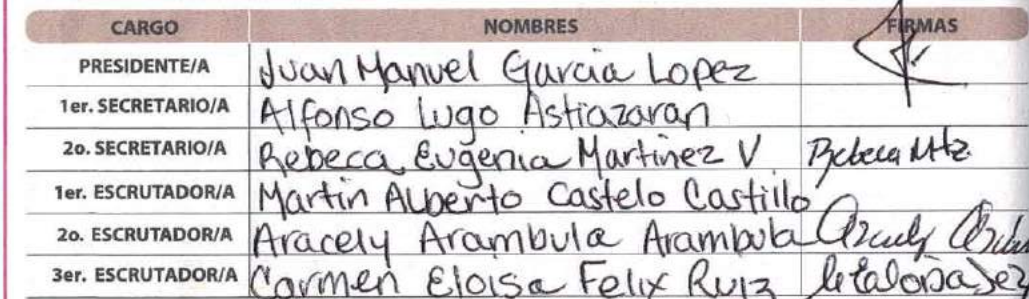 CARGO NOMBRES FIRMAS
PRESIDENTE/A Juan Manuel Garcia Lopez
1er. SECRETARIO/A Alfonso Lugo Astiazaran
2o. SECRETARIO/A Rebeca Eugenia Martinez V Rebeca Mtz
1er. ESCRUTADOR/A Martin Alberto Castelo Castillo
2o. ESCRUTADOR/A Aracely Arambula Arambula
3er. ESCRUTADOR/A Carmen Eloisa Felix Ruiz